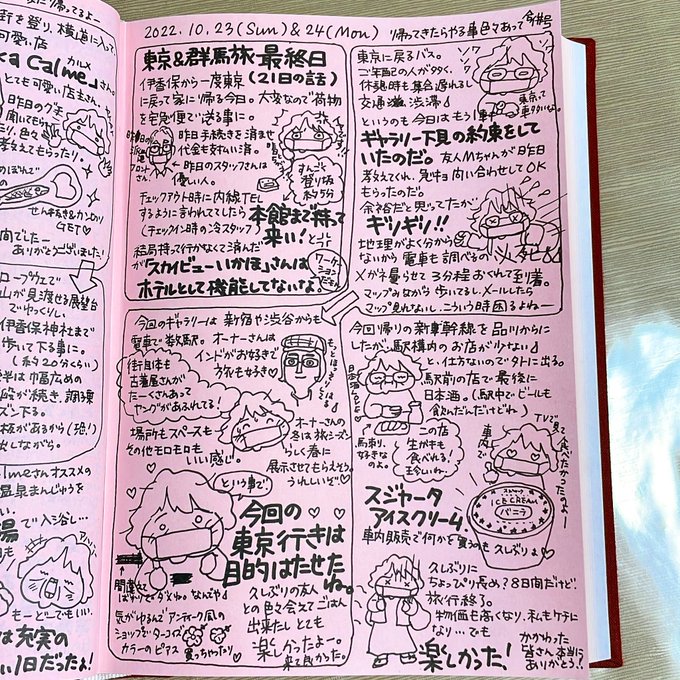 2022.10.23(Sun)&24(Mon) 帰ってきたらやる事色々あって
今本号
東京&群馬旅・最終日
(21日の話)
伊香保から一度東京
に戻って家に帰る今日。大変なので荷物
を宅急便で送る事に。
昨日手続きを済ませ
代金も支払い済。
←昨日のスタッフさんは
優しい人。
フロント
さん。
すんごく
登り坂
約5分
チェックアウト時に内線TEL
するように言われてしてたら
(チェックイン時の冷スタッフ)
本館まで持って
来い!と
結局持って行かなくて済んだ
が「スカイビューいかほ」さんは
ホテルとして機能してないよ。
東京に戻るバス。
ご年配の人が多く、
休憩時も集合遅れるし
交通渋滞
ソワ
ソワ
というのも今日はもう1軒
ギャラリー下見の約束をして
いたのだ。友人Mちゃんが昨日
考えてくれ、急きょ問い合わせしてOK
もらったのだ。
余裕だと思ってたが
ギリギリ!!
地理がよく分から
ないから電車も調べるの
メがね曇らせて3分程おくれて到着。
マップみながら歩いてるし、メールしたら
マップ見れないし、こういう時困るよねー
今回のギャラリーは新宿や渋谷からも
電車で数駅。オーナーさんは
インドがお好きで
旅も好き♡
街自体も
古着屋さんが
たーくさんあって
ヤングがあふれてる!
場所もスペースも
その他モロモロも
いい感じ。
オーナーさんの
冬は旅シーズン
らしく春に
展示させてもらえそう。
うれしいぞ♡
という事で
今回の
東京行きは
目的はたせた
ね。
久しぶりの友人
との色々会えてごはん
出来たしとても
楽しかったよー。
来て良かった。
気がゆるんでアンティーク風の
ショップでターコイズ
カラーのピアス買っちゃったり♡
今回帰りの新幹線を品川からに
したが、駅構内のお店が少ない
と、仕方ないので外に出る。
駅前の店で最後に
日本酒。(駅中でビールも
飲んだんだけどね)
馬刺し
好きな
のよ。
この店
生がきも
食べれる!
珍しいね。
TVで見て
食べたかったのよー
車内で
スジャータ
ICE CREAM
バニラ
スジャータ
アイスクリーム
車内販売で何かを買うのも久しぶりよ
久しぶりに
ちょっぴり長め?8日間だけど
旅行終了。
物価も高くなり、私もケチに
なり…でも
楽しかった!
かかわった
皆さん本当に
ありがとう!!
街を登り、横道に入って、
可愛い店
カルメ
ka Calme」さん。
とても可愛い店主さん。
昨日のグチ
聞いてもらっ
たり、色々
考えてもらったり。
せん抜き&かんきり
GET♡
ありがとうございました!
ロープウェで
山が見渡せる展望台
でゆっくりし、
伊香保神社まで
歩いて下る事に。
(約20分くらい)
は幅広めの
段が続き、調子
ズン下る。
坂があるから(恐!)
出しながら。
almeさんオススメの
温泉まんじゅうを
湯で入浴し…
もーどーでもいい。
は充実の
1日だったよ!